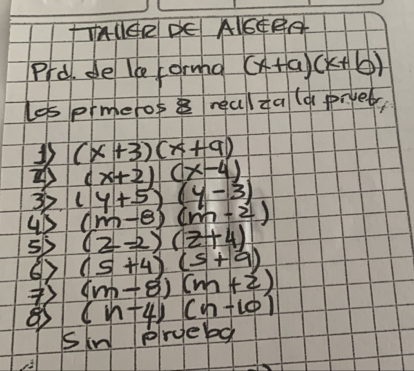 TALLER DE AlGEBRA
Prd. de la forma (x+a)(x+b)
los prmeros 8 realiza la prueb,
1> (x+3)(x+9)
2> (x+2) (x-4)
3> (y+5) (y-3)
4> (m-8) (m-2)
5> (z-2) (z+4)
6> (s+4) (s+9)
7> (m-8) (m+2)
8> (n-4) (n-10)
Sin prueba